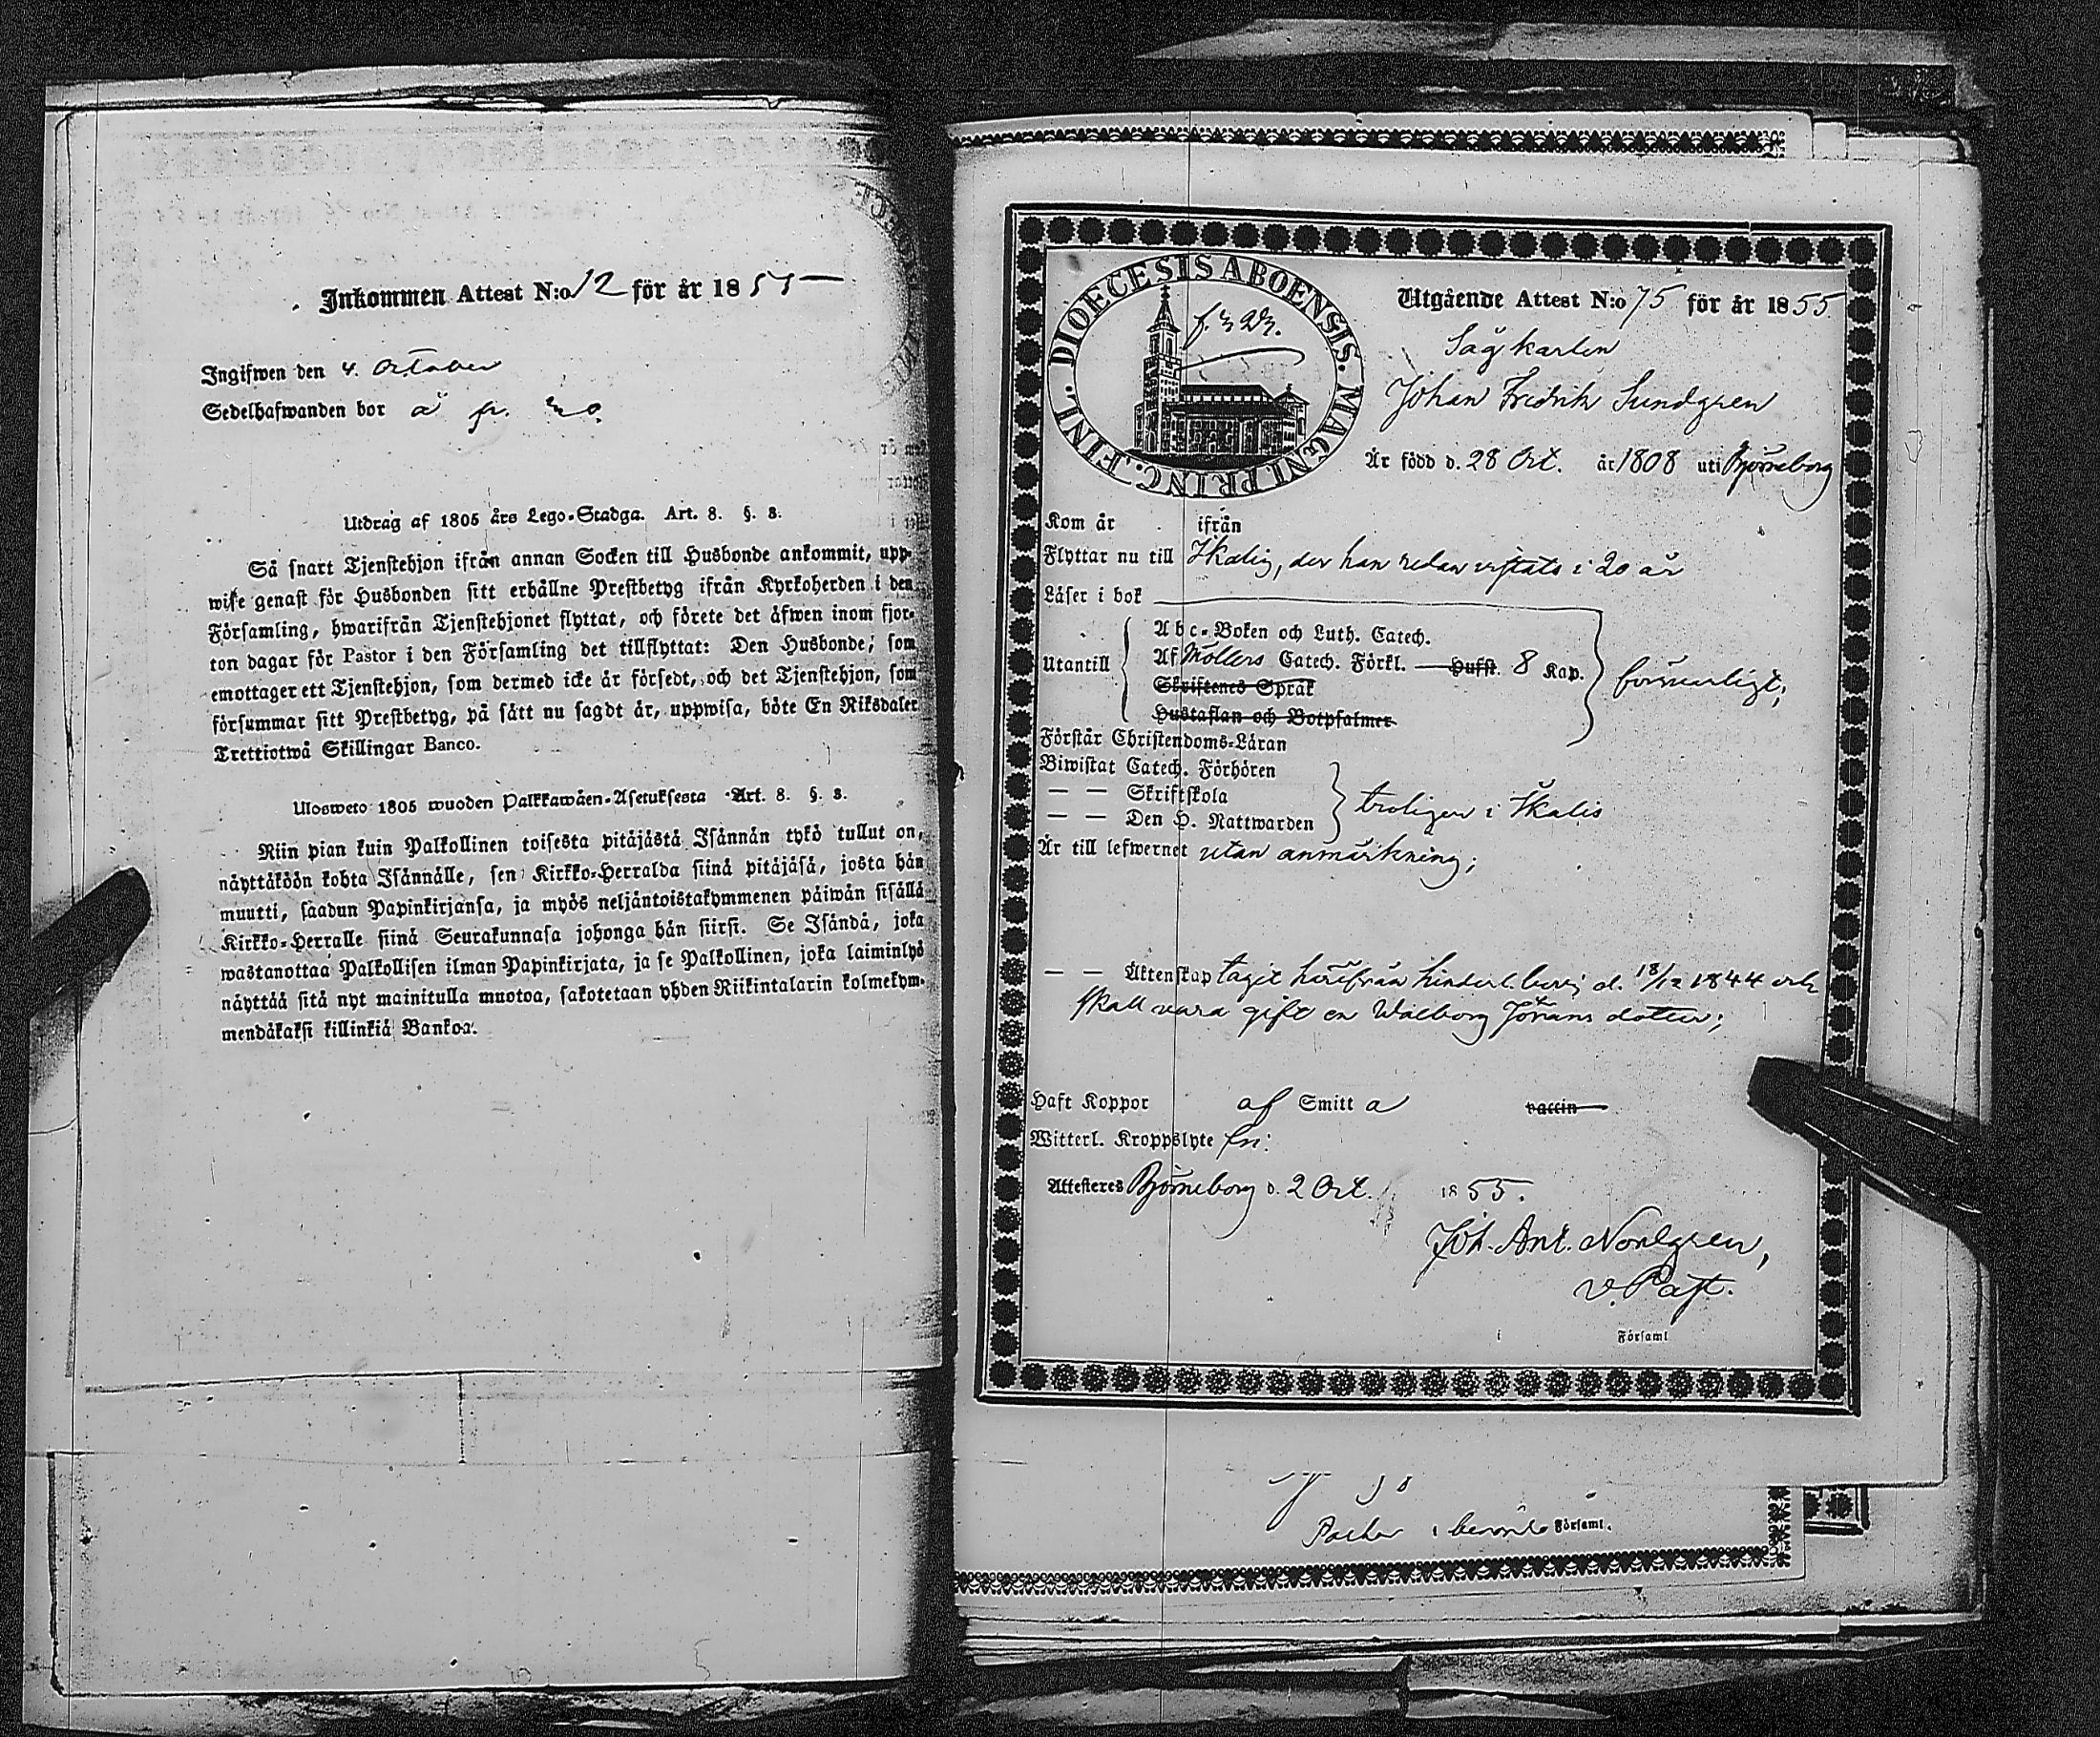 Inkommen Attest N:o 12 för år 1855
Ingifwen den 4. October
Sedelhafwanden bor å
Utdrag af 1805 års Lego-Stadga. Art. 8. §. 8.
Så snart Tjenstehjon ifrån annan Socken till Husbonde ankommit, upp-
wise genast för Husbonden sitt erhållne Prestbetyg ifrån Kyrkoherden i den
Församling, hwarifrån Tjenstehjonet flyttat, och förete det äfwen inom fjor-
ton dagar för Pastor i den Församling det tillflyttat: Den Husbonde, som
emottager ett Tjenstehjon, som dermed icke är försedt, och det Tjenstehjon, som
försummar sitt Prestbetyg, på sätt nu sagdt är, uppwisa, böte En Riksdaler
Trettiotwå Skillingar Banco.
Ulosweto 1805 wuoden Palkkawäen-Asetuksesta Art. 8. §. 8.
Niin pian kuin Palkollinen toisesta pitäjästä Isännän tykö tullut on,
näyttäköön kohta Isännälle, sen Kirkko-Herralda siinä pitäjäsä, josta hän
muutti, saadun Papinkirjansa, ja myös neljäntoistakymmenen päiwän sisällä
Kirkko-Herralle siinä Seurakunnasa johonga hän siirsi. Se Isändä, joka
wastanottaa Palkollisen ilman Papinkirjata, ja se Palkollinen, joka laiminlyö
näyttää sitä nyt mainitulla muotoa, sakotetaan yhden Riikintalarin kolmekym-
mendäkaksi killinkiä Bankoa.
DIOECESIS ABOENSIS. MAGNI PRINC. FINL.
Utgående Attest N:o 75 för år 1855
Sågkarlen
Johan Fredrik Sundgren
Är född d. 28 Oct. år 1808 uti Björneborg
Kom år ifrån
Flyttar nu till Ikalis, der han redan vistats i 20 år
Läser i bok
Abc-Boken och Luth. Catech.
Utantill Af Möllers Catech. Förkl. Hufst. 8 Kap. försvarligt;
Skriftenes Språk
Hustaflan och Botpsalmer
Förstår Christendoms-Läran
Biwistat Catech. Förhören
— — Skriftskola troligen i Ikalis
— — Den H. Nattwarden
Är till lefwernet utan anmärkning;
— — Äktenskap tagit härifrån hinderl. bevis d. 18/12 1844 och
skall vara gift en Walborg Jörans dotter;
Haft Koppor af Smitta vaccin
Witterl. Kroppslyte fri:
Attesteres Björneborg d. 2 Oct. 1855.
Joh. Ant. Nordgren,
v. Past.
i Församl
Pastor i Församl.